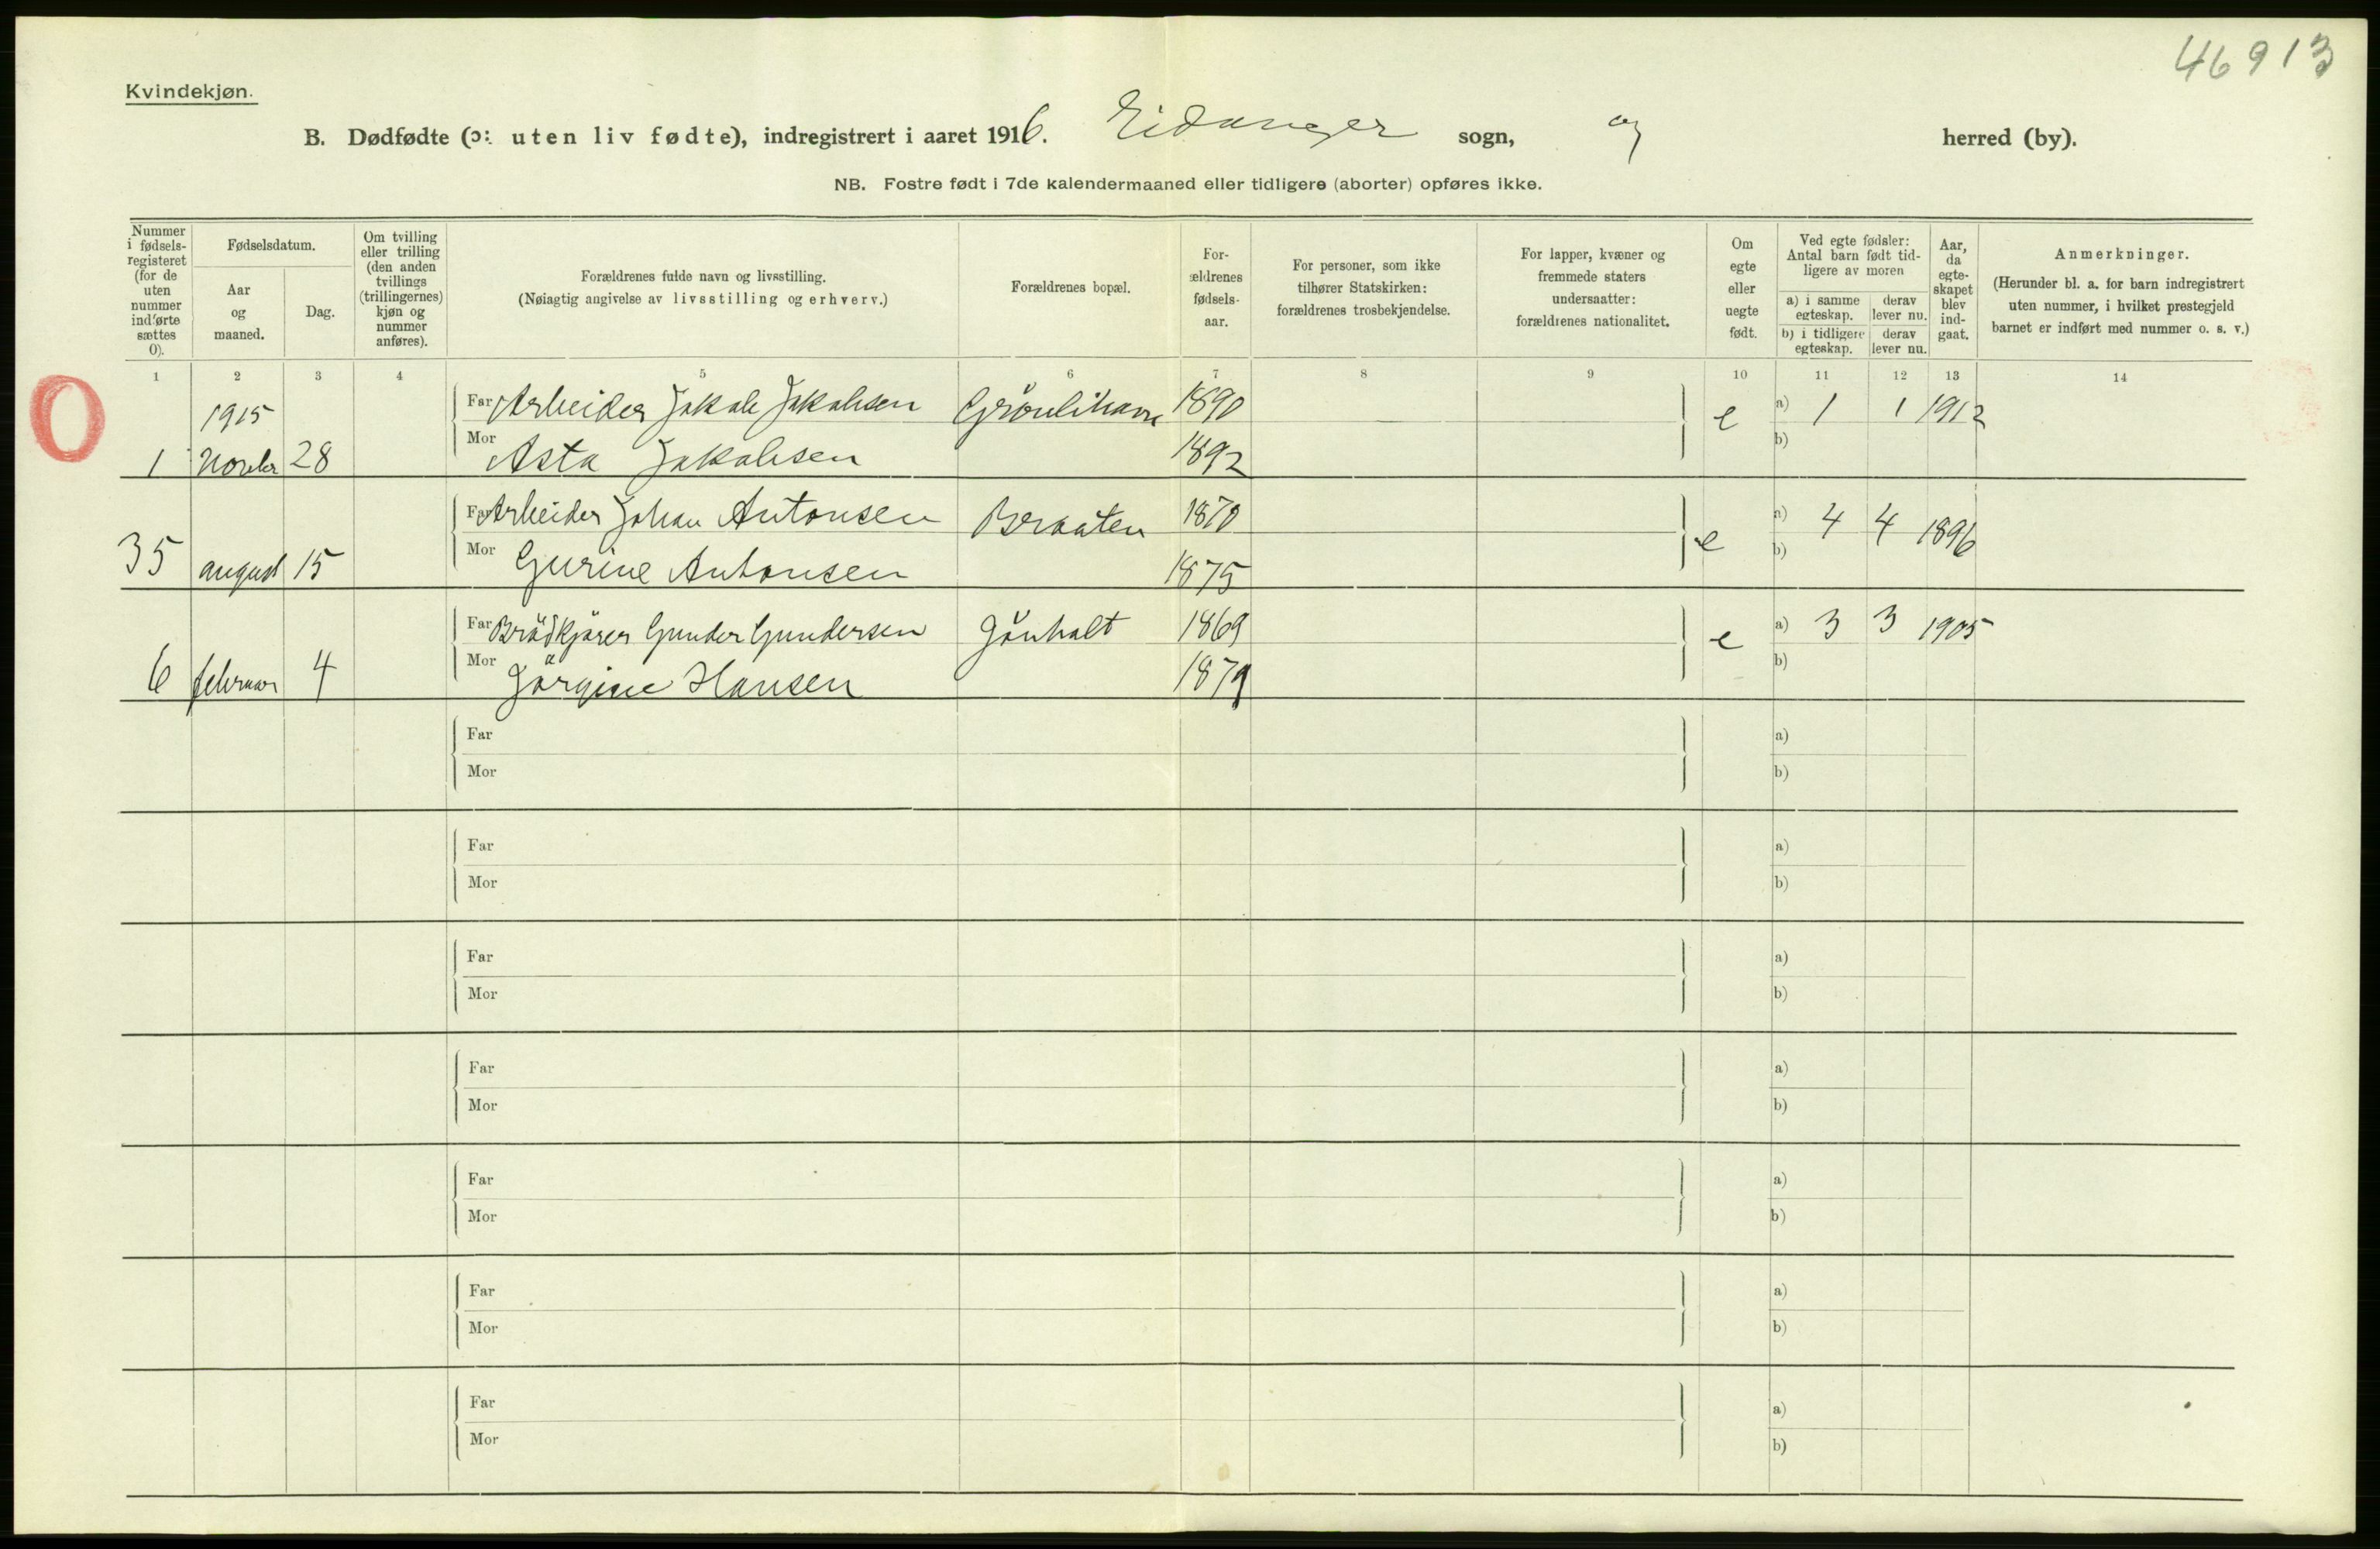 46913
Kvindekjøn.
B. Dødfødte (ɔ: uten liv fødte), indregistrert i aaret 1916. Eidanger sogn, og herred (by).
NB. Fostre født i 7de kalendermaaned eller tidligere (aborter) opføres ikke.
Nummer i fødsels-registeret (for de uten nummer indførte sættes 0).
Fødselsdatum.
Aar og maaned.
Dag.
Om tvilling eller trilling (den anden tvillings (trillingernes) kjøn og nummer anføres).
Forældrenes fulde navn og livsstilling.
(Nøiagtig angivelse av livsstilling og erhverv.)
Forældrenes bopæl.
For-ældrenes fødsels-aar.
For personer, som ikke tilhører Statskirken: forældrenes trosbekjendelse.
For lapper, kvæner og fremmede staters undersaatter: forældrenes nationalitet.
Om egte eller uegte født.
Ved egte fødsler: Antal barn født tid-ligere av moren
a) i samme egteskap.
derav lever nu.
b) i tidligere egteskap.
derav lever nu.
Aar, da egte-skapet blev ind-gaat.
Anmerkninger.
(Herunder bl. a. for barn indregistrert uten nummer, i hvilket prestegjeld barnet er indført med nummer o. s. v.)
1 2 3 4 5 6 7 8 9 10 11 12 13 14
0
1915 Far Arbeider Jakob Jakobsen 1890 e a) 1 1 1912
1 Novbr 28 Mor Asta Jakobsen 1892 b)
Far Arbeider Johan Antonsen Braaten 1870 e a) 4 4 1896
35 august 15 Mor Gurine Antonsen 1875 b)
Far Brödkjører Gunder Gundersen Gönholt 1869 e a) 3 3 1905
6 februar 4 Mor Jörgine Hansen 1879 b)
Far a)
Mor b)
Far a)
Mor b)
Far a)
Mor b)
Far a)
Mor b)
Far a)
Mor b)
Far a)
Mor b)
Far a)
Mor b)